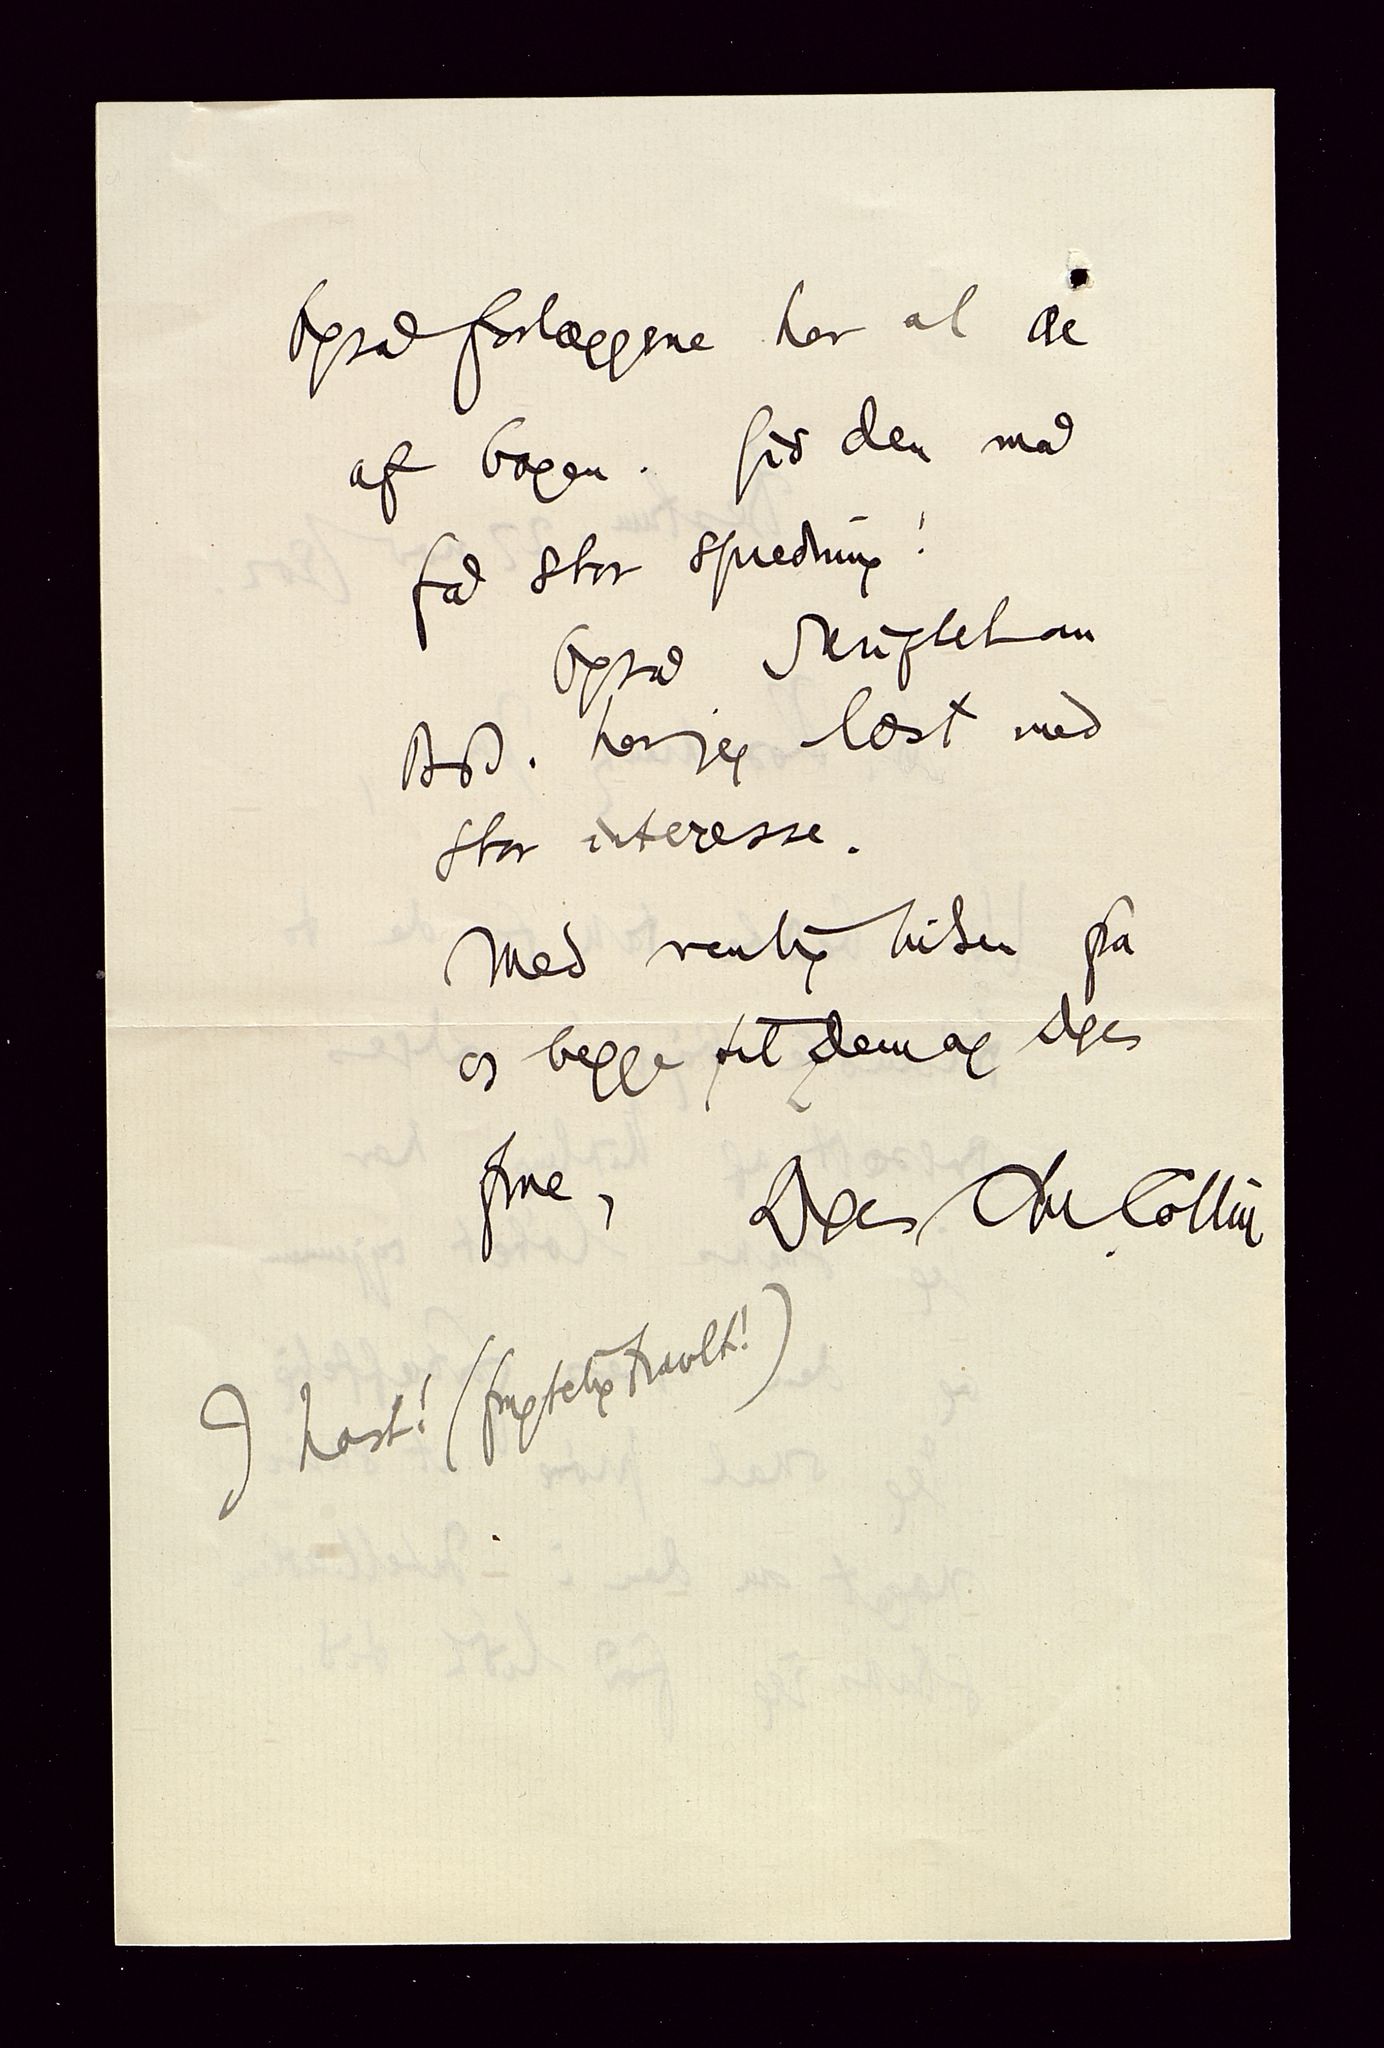 Også forlæggerne har al ære
af bogen. Gid den må
få stor spredning!
Også skriftet om
B.B. har jeg læst med
stor interesse.
Med venlig hilsen fra
os begge til Dem og Deres
frue, Deres Chr Collin
I hast! (frygtelig travlt!)